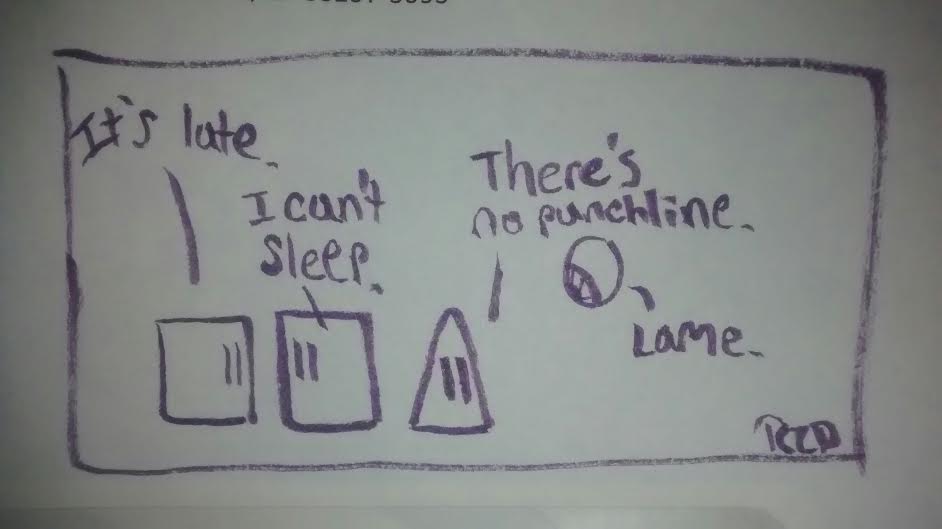 It's late.
I can't
sleep.
There's
no punchline.
Lame.